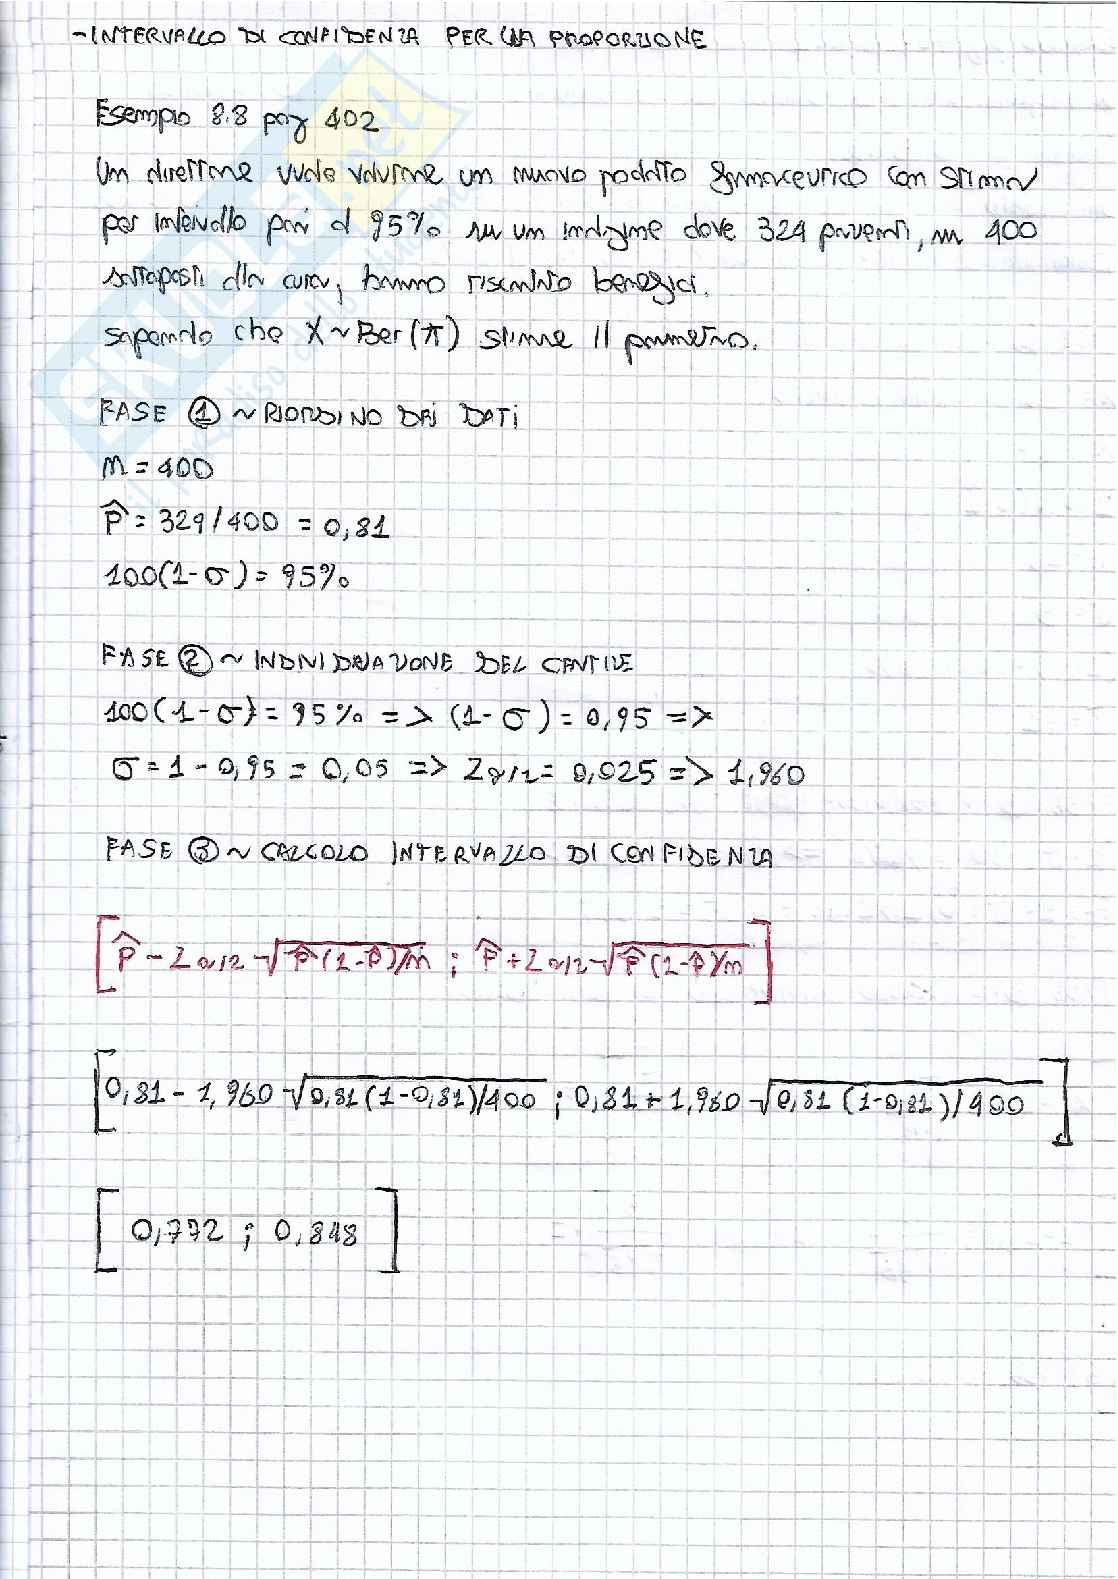 - INTERVALLO DI CONFIDENZA PER LA PROPORZIONE
Esempio 8.8 pag 402
Un direttore vuole valutare un nuovo prodotto farmaceutico con stima
per intervallo pari al 95% su un indagine dove 324 pazienti, su 400
sottoposti alla cura, hanno riscontrato benefici.
sapendo che X ~ Ber(π) stimare il parametro.
FASE ① ~ RIORDINO DEI DATI
n = 400
p̂ = 324/400 = 0,81
100(1-σ) = 95%
FASE ② ~ INDIVIDUAZIONE DEL CENTILE
100(1-σ) = 95% => (1-σ) = 0,95 =>
σ = 1 - 0,95 = 0,05 => Zα/2 = 0,025 => 1,960
FASE ③ ~ CALCOLO INTERVALLO DI CONFIDENZA
[p̂ - Zα/2 √p̂(1-p̂)/n ; p̂ + Zα/2 √p̂(1-p̂)/n]
[0,81 - 1,960 √0,81(1-0,81)/400 ; 0,81 + 1,960 √0,81(1-0,81)/400]
[0,772 ; 0,848]